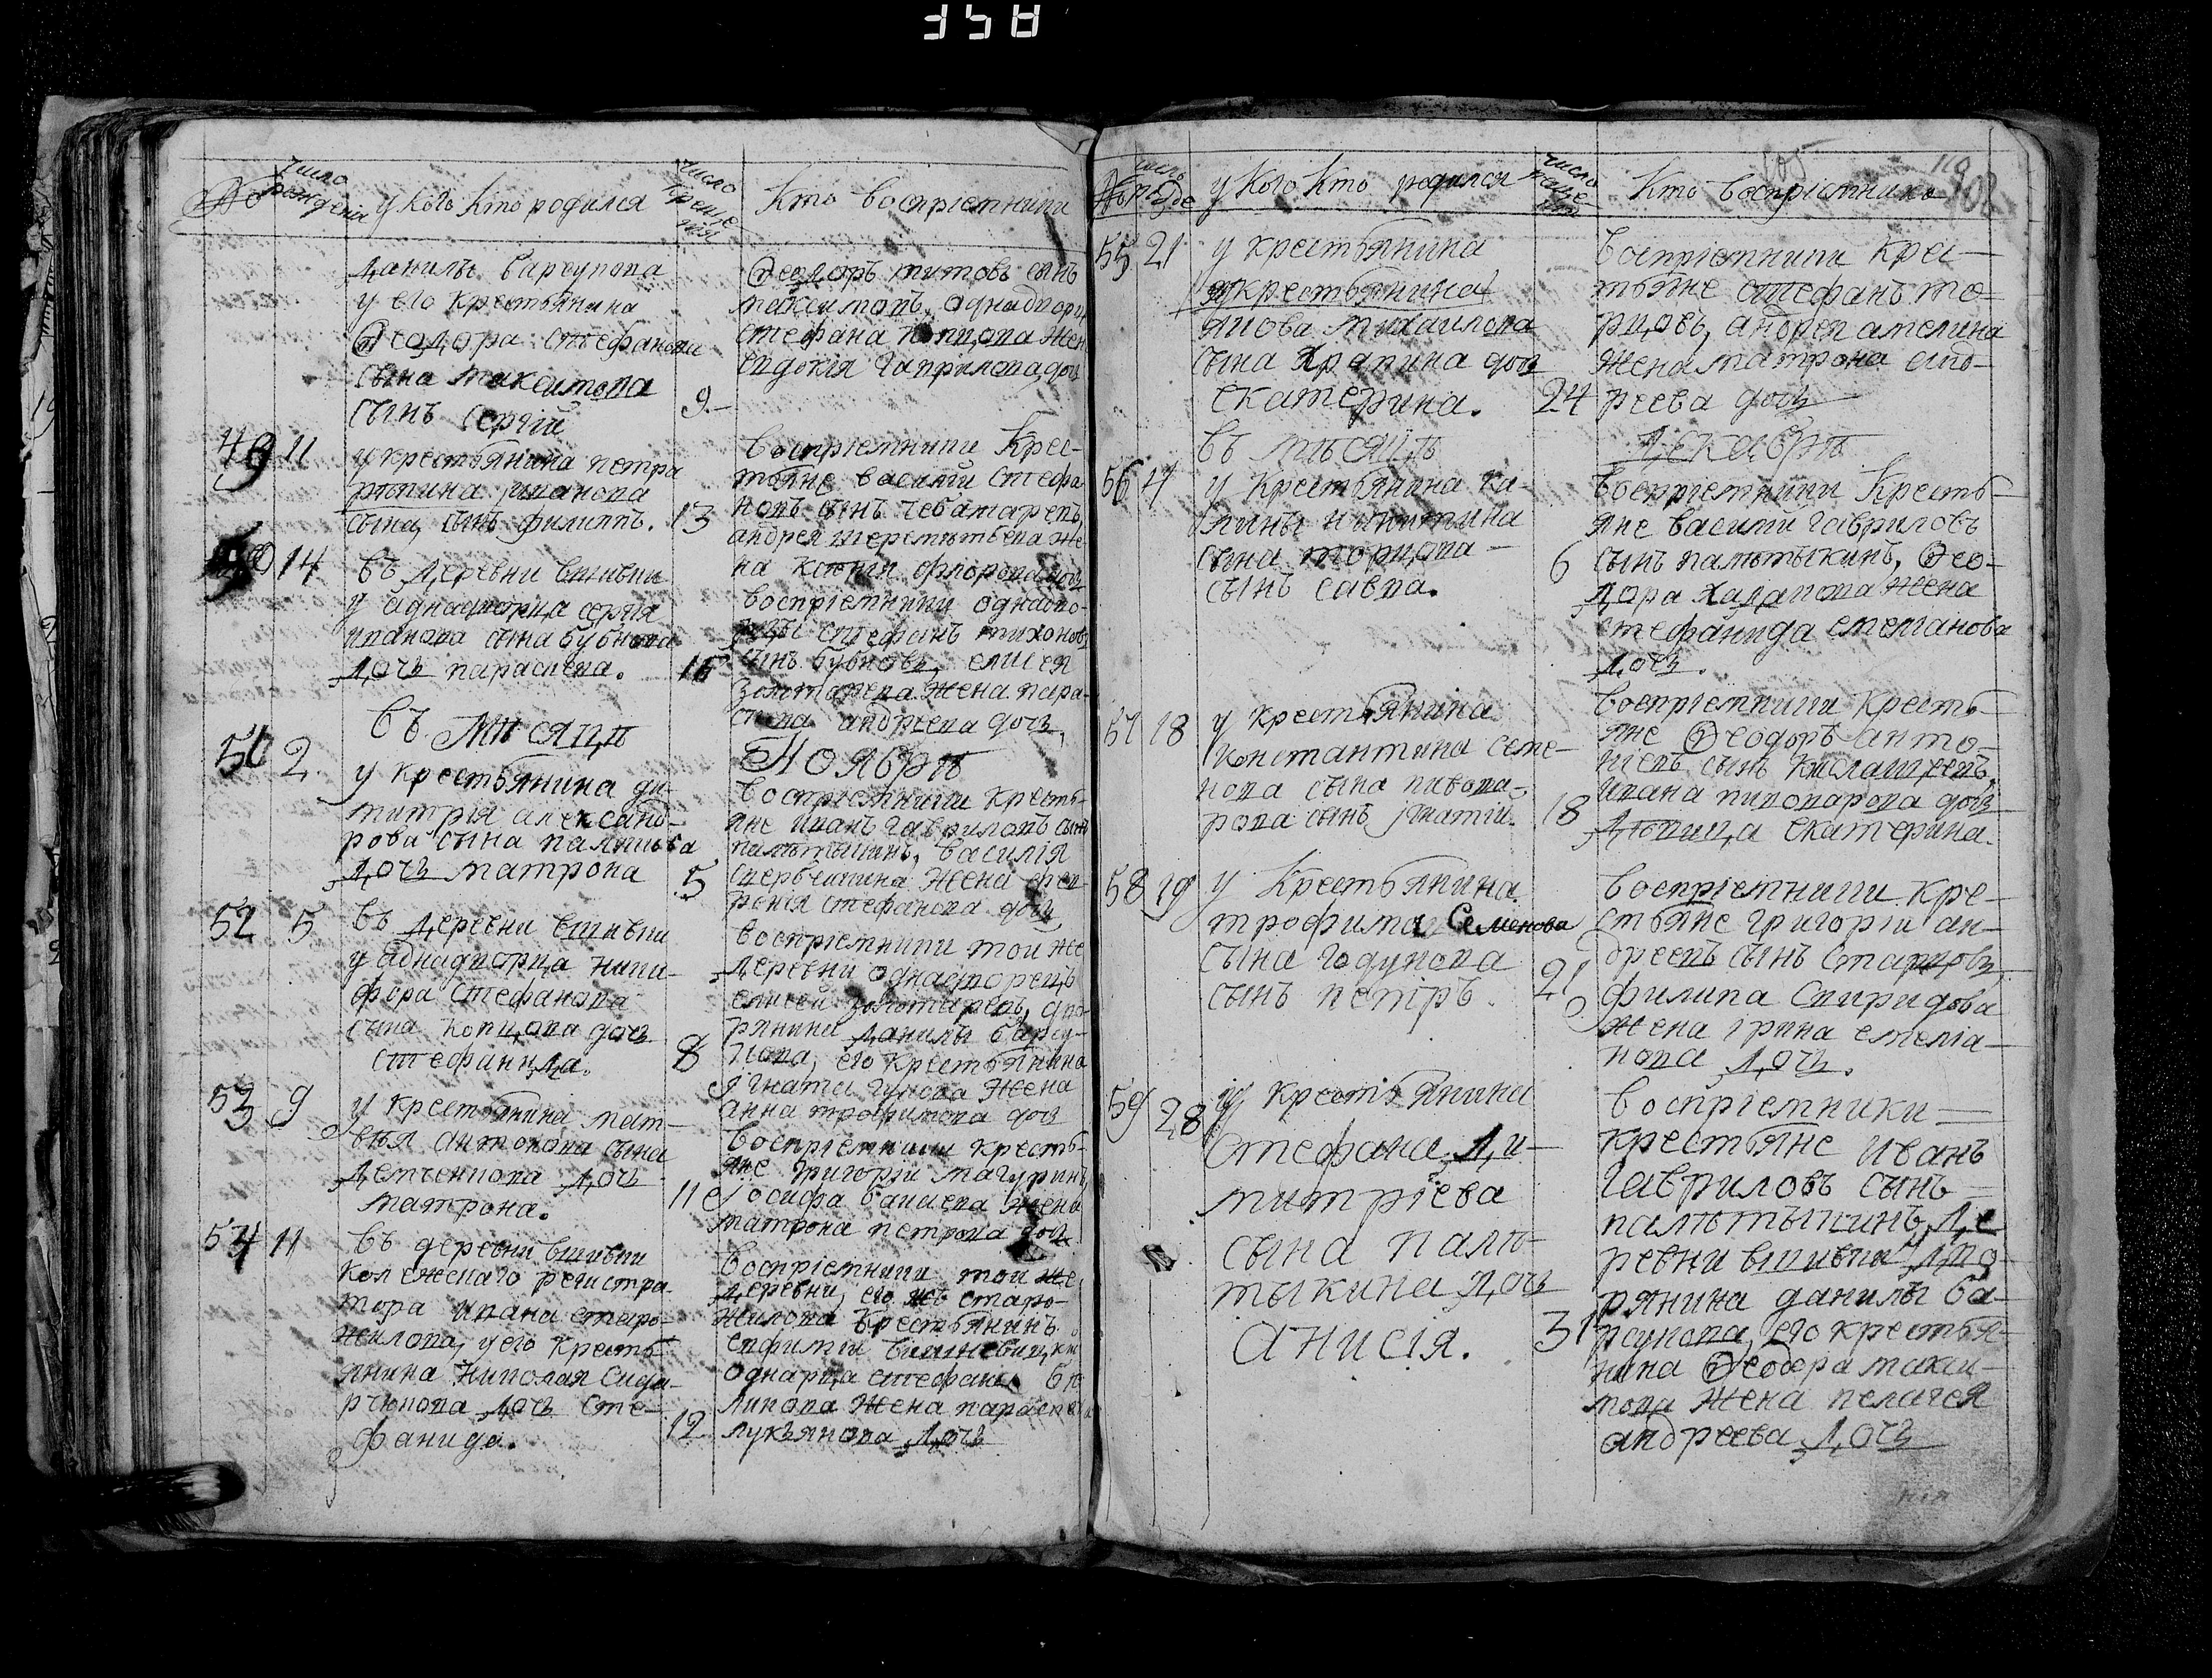 358
№
число рождения
у кого кто родился
число крещения
Кто воспріемники
Данилы Барсукова
у его крестьянина
Ѳеодора Стефанова
сына Максимова
сынъ Сергій
9.
Ѳеодоръ титовъ сынъ
максимовъ, однодворц
стефана копцова жен
евдокія гаврилова дочь
49 11
у крестьянина петра
рѣпина иванова
сына, сынъ филиппъ.
13
воспріемники Крес-
тьяне василій Стефа
новъ сынъ чеботаревъ,
андрея шереметьева же-
на ксенія флорова дочь
14
въ деревни вшивки
у однодворца сергія
иванова сына бубнова
дочь параскева.
16
воспріемники однодво-
рцы стефанъ тихоновъ
сынъ бубновъ, елисея
золотарева жена пара-
скева андреева дочь
въ Мѣсяцѣ
Ноябрѣ
51 2.
у крестьянина ди-
митрія александ-
рова сына
дочь матрона
5
воспріемники кресть-
яне иванъ гавриловъ сынъ
памѣтыкинъ, василія
щербинина жена фев
ронія стефанова дочь
52 5
въ деревни вшивки
у однодворца ники-
фора стефанова
сына копцова дочь
стефанида.
8
воспріемники той же
деревни однодворецъ
елисей золотаревъ, дво-
рянина Данилы барсу-
кова, его крестьянина
игната гукова жена
анна трофимова дочь
53 9
у крестьянина мат-
вѣя антонова сына
Демченкова дочь
матрона.
11
воспріемники кресть-
яне григорій магуринъ
осифа башеева жена
матрона петрова дочь
54 11
въ деревни вшивки
колежскаго регистра-
тора ивана старо-
жилова, у его кресть-
янина Николая Сидо-
рчюкова дочь сте-
фанида.
12.
воспріемники той же
деревни, его жъ старо-
жилова крестьянинъ
евфимій
однарца стефана
жена параскев
лукъянова дочь
№
число рожде
у кого кто родился
число креще
Кто воспріемники
105
110
102
55 21
у крестьянина
у крестьянина
якова михаилова
сына храпина дочь
екатерина.
24
воспріемники крес-
тьяне стефанъ тво-
рцовъ, андрея амелина
жена матрона егор-
реева дочь
въ мѣсяцѣ
декабрѣ
56 4
у крестьянина га-
никитина
сына творцова
сынъ савва.
6
воспріемники Кресть-
яне василій гавриловъ
сынъ памѣтыкинъ, Ѳео-
дора харапова жена
стефанида емелианова
дочь.
57 18
у крестьянина
Константина семе-
нова сына пивова-
рова сынъ ігнатій.
18
воспріемники кресть-
яне Ѳеодоръ анто-
ніевъ сынъ
ивана пивоварова дочь
дѣвица екатерина.
58 19
у Крестьянина
трофима Семенова
сына годунова
сынъ петръ.
21
воспріемники кре-
стьяне григорій ан-
дреевъ сынъ старцовъ,
филипа спиридова
жена ірина емеліа-
нова дочь.
59 28
у крестьянина
Стефана Ди-
митріева
сына памѣ-
тыкина дочь
анисія.
31
воспріемники
крестьяне иванъ
гавриловъ сынъ
памѣтыкинъ, де
ревни вшивка дво-
рянина данилы ба-
рсукова, его крестья-
нина Ѳеодора макси-
мова жена пелагея
андреева дочь